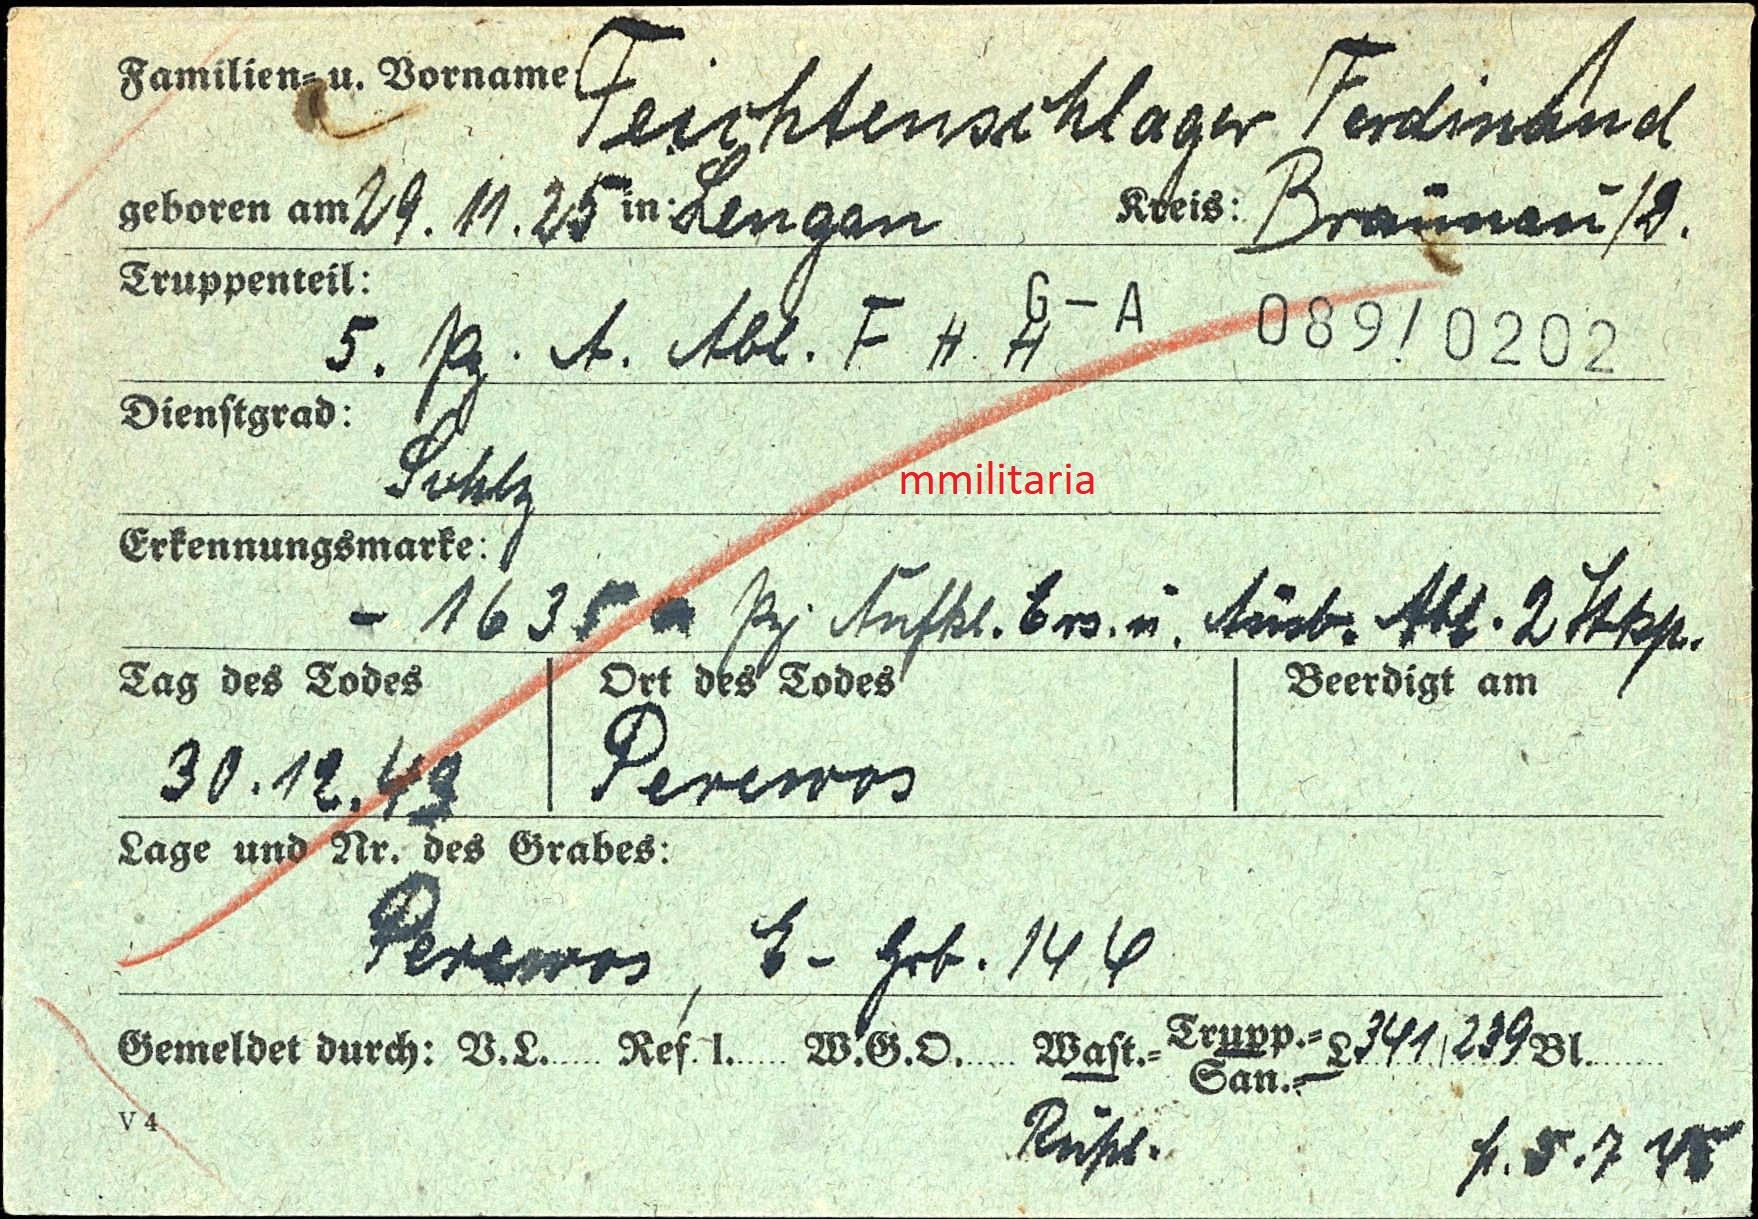 Familien- u. Vorname: Feichtenschlager Ferdinand
geboren am 29. 11. 25 in: Lengau Kreis: Braunau/D.
Truppenteil:
G-A 089/0202
5. Pz. A. Abt. F H H
Dienstgrad:
Schtz
mmilitaria
Erkennungsmarke:
- 1635 - Pz Aufkl. Ers. u. Ausb. Abt. 2 Stkp.
Tag des Todes Ort des Todes Beerdigt am
30.12.43 Perewos
Lage und Nr. des Grabes:
Perewos, E- Grb. 144
Gemeldet durch: V.L..... Ref. I...... W.G.O...... Wast.= Trupp.= San.= L341/239 Bl.
V 4
5.7